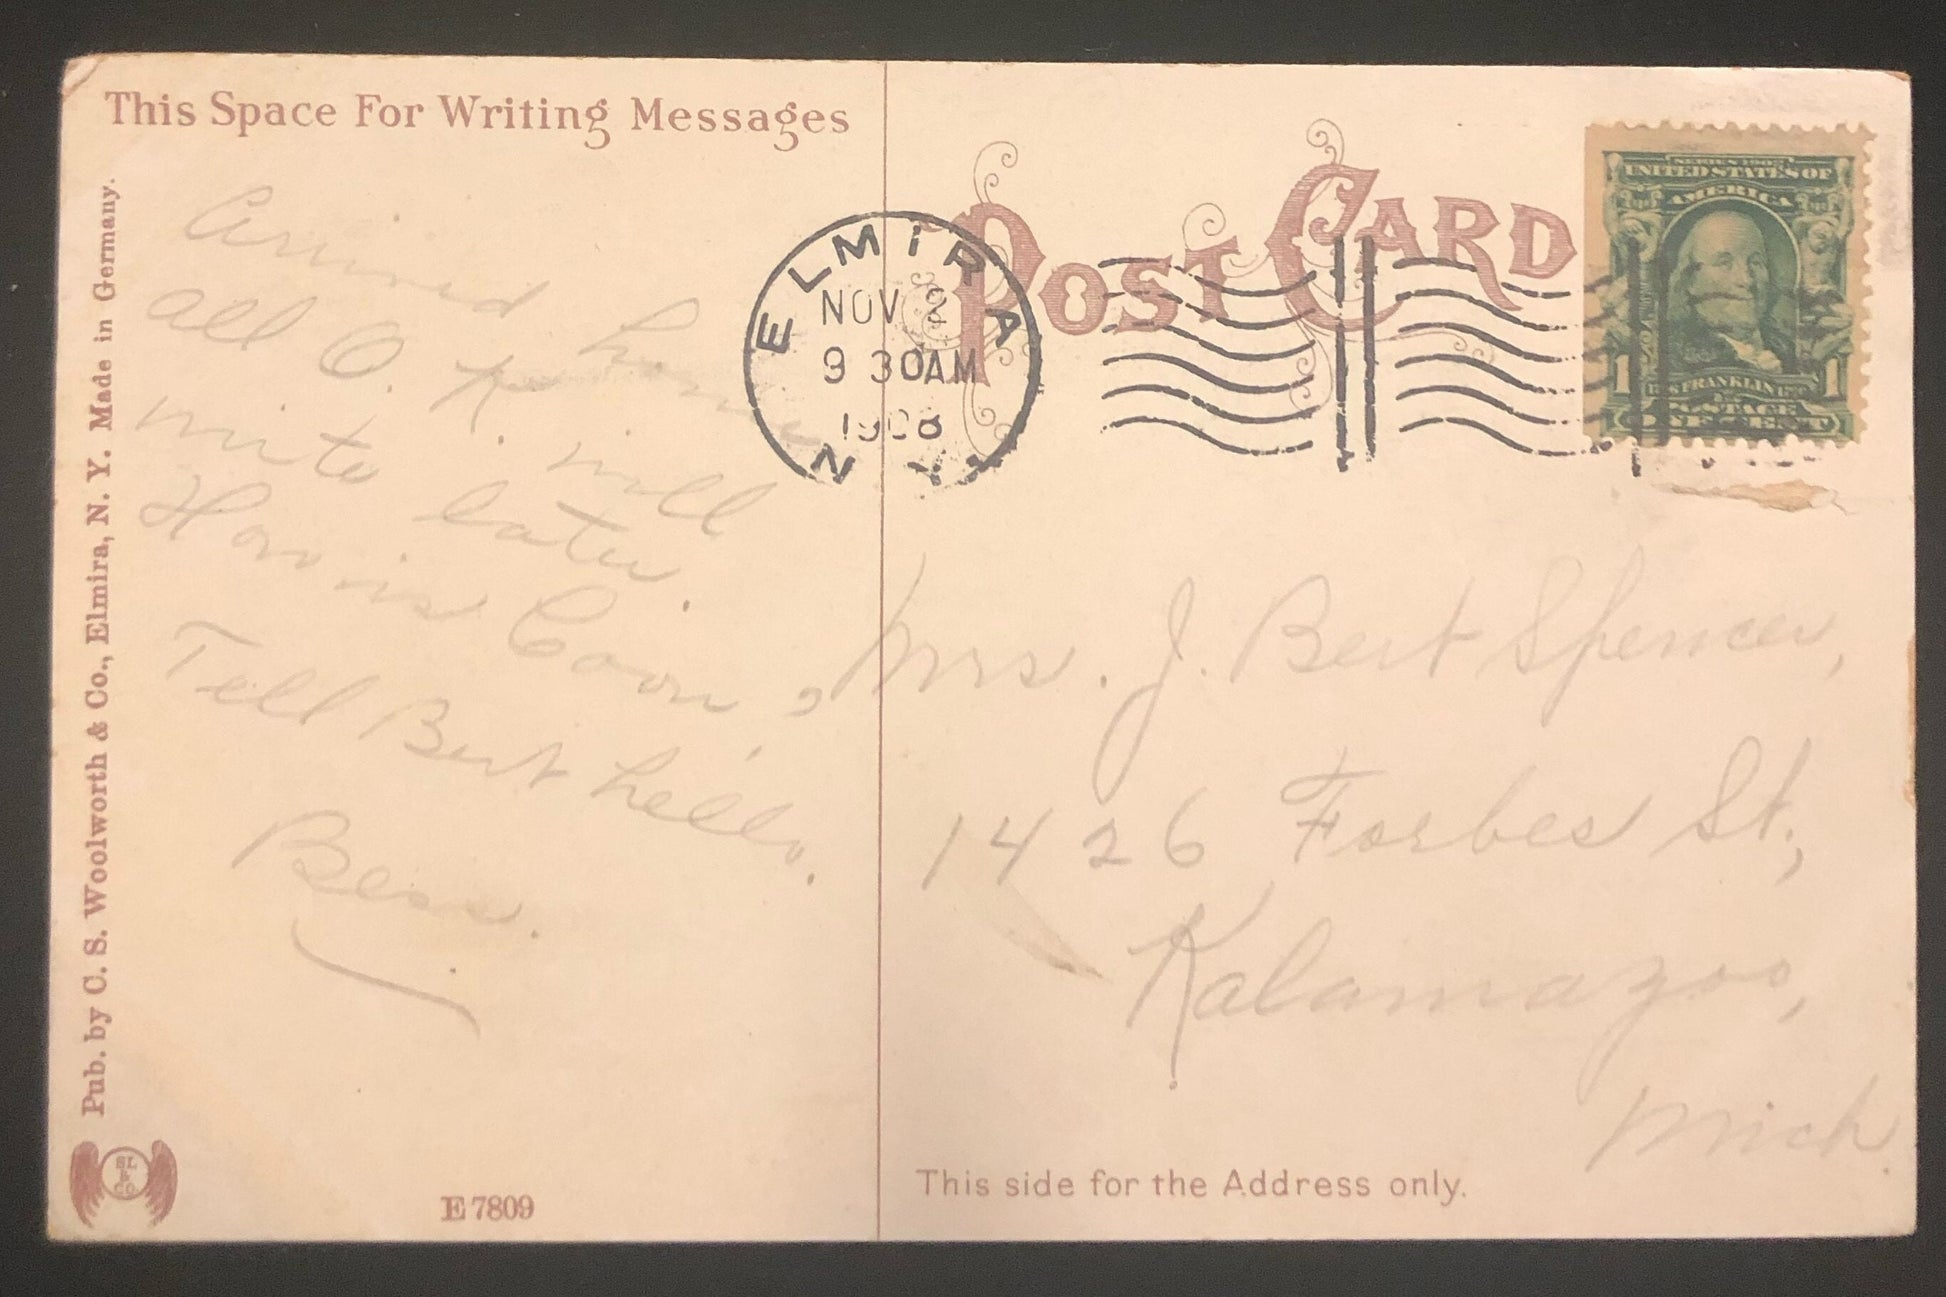 This Space For Writing Messages
Arrived home
all O. K. will
write later.
How is Coon,
Tell Bert hello.
Bess.
Pub. by C. S. Woolworth & Co., Elmira, N. Y. Made in Germany.
SL
&
CO
E 7809
POST CARD
ELMIRA
NOV
9 30AM
1908
N Y
SERIES 1902
UNITED STATES OF
AMERICA
1 FRANKLIN 1
POSTAGE
ONE CENT
Mrs. J. Bert Spencer,
1426 Forbes St.,
Kalamazoo,
Mich.
This side for the Address only.